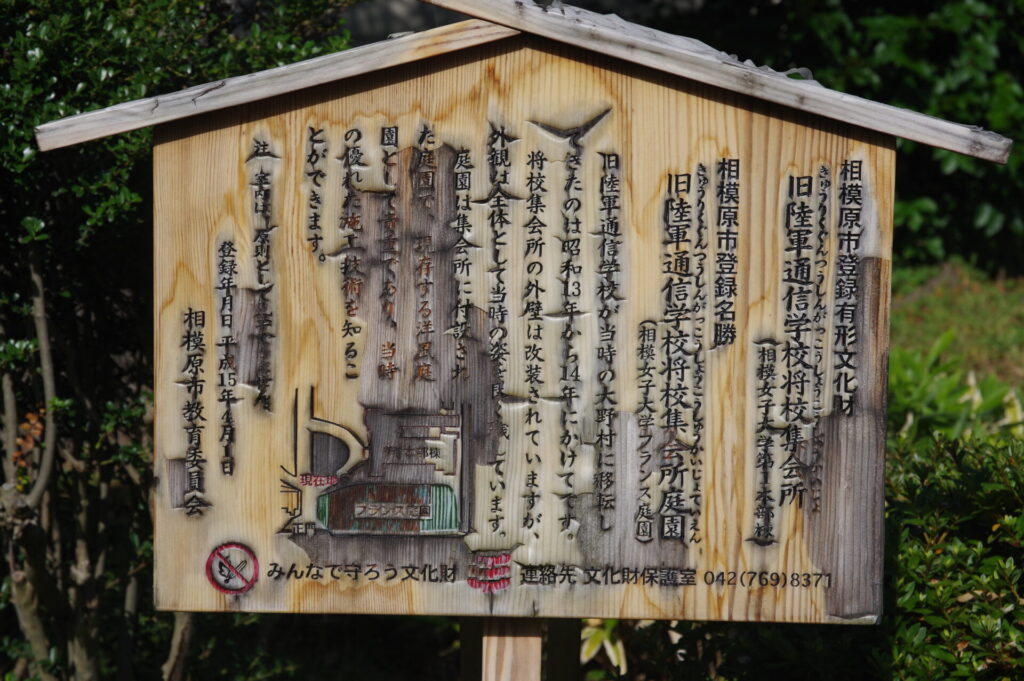 相模原市登録有形文化財
きゅうりくぐんつうしんがっこうしょうこうしゅうかいじょ
旧陸軍通信学校将校集会所
（相模女子大学第1本部棟）
相模原市登録名勝
きゅうりくぐんつうしんがっこうしょうこうしゅうかいじょていえん
旧陸軍通信学校将校集会所庭園
（相模女子大学フランス庭園）
旧陸軍通信学校が当時の大野村に移転し
てきたのは昭和13年から14年にかけてです。
将校集会所の外壁は改装されていますが、
外観は全体として当時の姿を良く残しています。
庭園は集会所に付設され
た庭園で、現存する洋風庭
園として貴重であり、当時
の優れた施工技術を知るこ
とができます。
注 室内は、原則として
登録年月日 平成15年4月1日
相模原市教育委員会
本部棟
現在地
フランス庭園
正門
みんなで守ろう文化財
連絡先 文化財保護室 042(769)8371